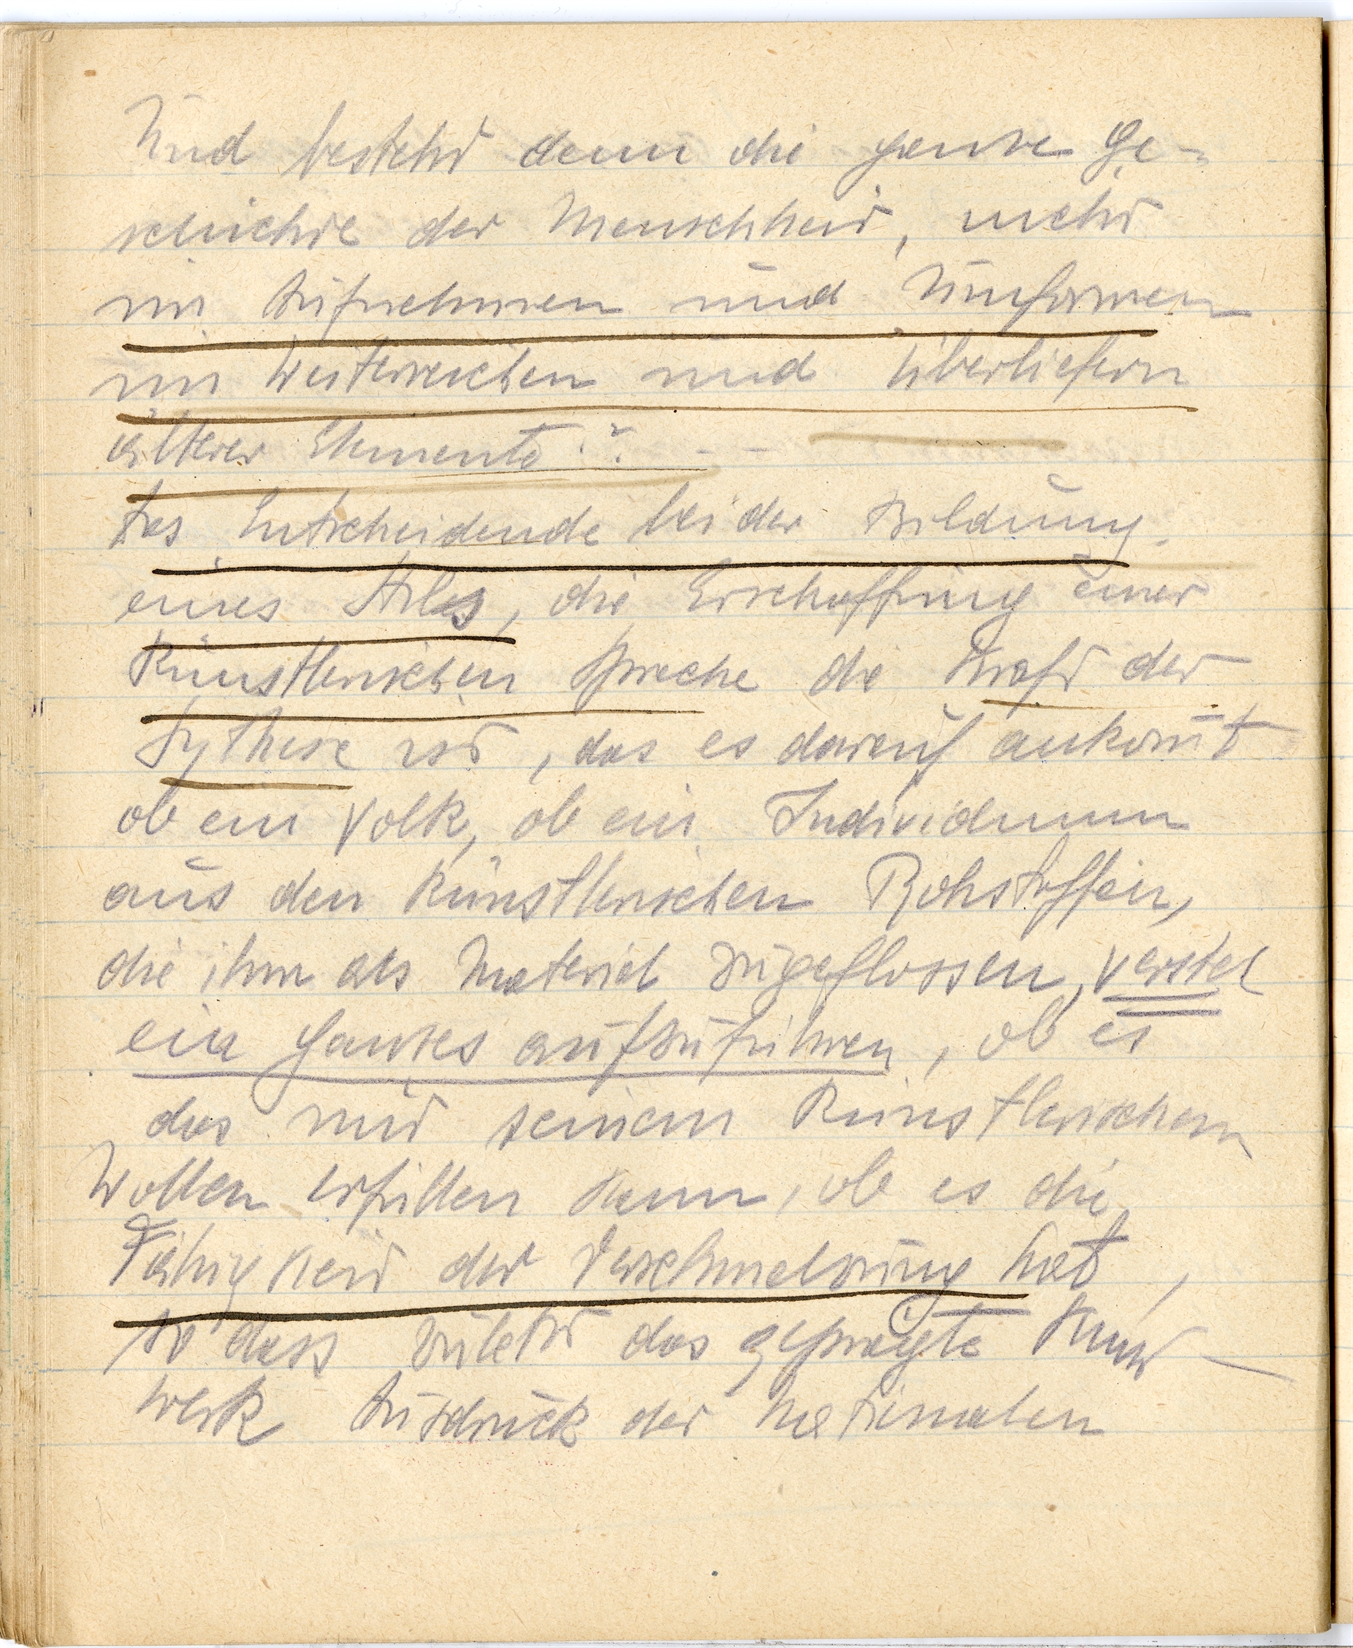 Und besteht denn die ganze Ge-
schichte der Menschheit, nicht
im Aufnehmen und Umformen
im Weiterreichen und Überliefern
älterer Elemente?
Das Entscheidende bei der Bildung
eines Stiles, die Erschaffung einer
künstlerischen Sprache die Kraft der
Sythese ist, das es darauf ankom̄t
ob ein Volk, ob ein Individuum
aus den künstlerischen Rohstoffen,
die ihm als Material zugeflossen, verstet
ein Ganzes aufzuführen, ob es
das mit seinem künstlerischen
Wollen erfüllen kann, ob es die
Fähigkeit der Verschmelzung hat,
so dass zuletzt das geprägte Kunst-
werk Ausdruck der nationalen